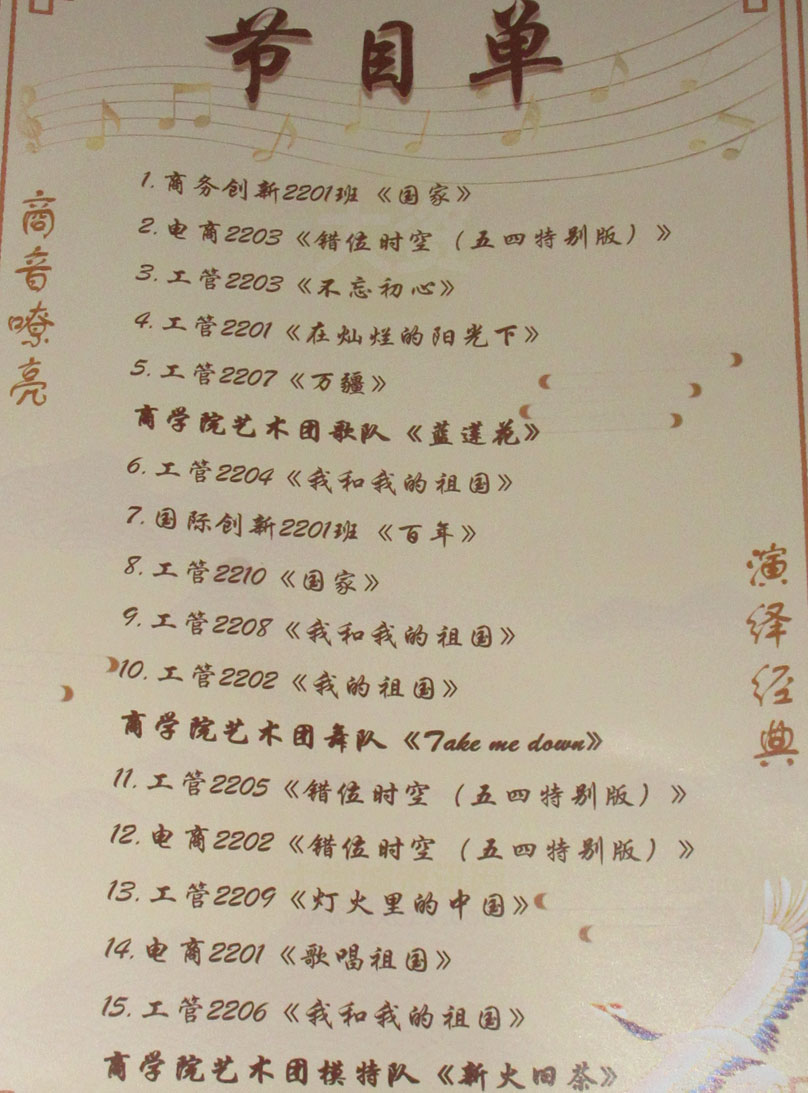 节目单
商音嘹亮
1. 商务创新2201班《国家》
2. 电商2203《错位时空（五四特别版）》
3. 工管2203《不忘初心》
4. 工管2201《在灿烂的阳光下》
5. 工管2207《万疆》
商学院艺术团歌队《蓝莲花》
6. 工管2204《我和我的祖国》
7. 国际创新2201班《百年》
8. 工管2210《国家》
9. 工管2208《我和我的祖国》
10. 工管2202《我的祖国》
商学院艺术团舞队《Take me down》
11. 工管2205《错位时空（五四特别版）》
12. 电商2202《错位时空（五四特别版）》
13. 工管2209《灯火里的中国》
14. 电商2201《歌唱祖国》
15. 工管2206《我和我的祖国》
商学院艺术团模特队《新火旧茶》
演绎经典